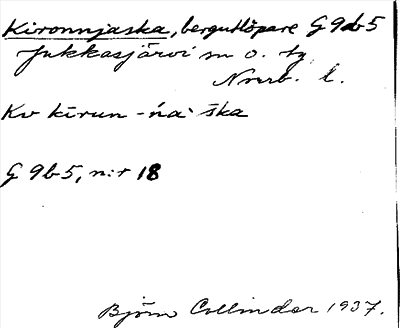 Kironnjaska, bergutlöpare G 9b5
Jukkasjärvi sn o. tg
Nrrb. l.
Kv kīrun-ńaˋška
G 9b5, n:r 18
Björn Collinder 1937.